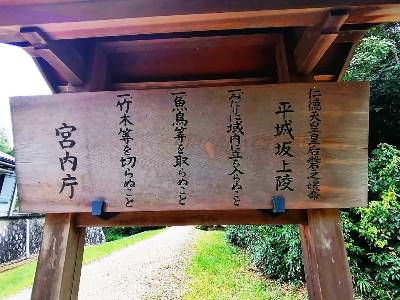 仁徳天皇皇后磐之媛命
平城坂上陵
一、みだりに域内に立ち入らぬこと
一、魚鳥等を取らぬこと
一、竹木等を切らぬこと
宮内庁